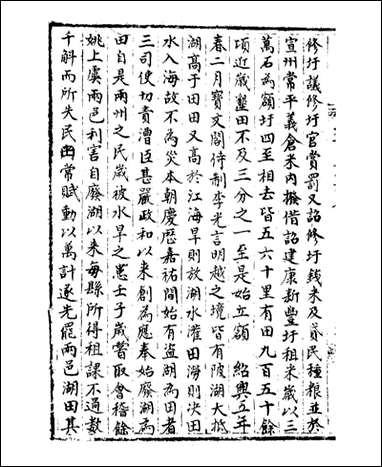 修圩議修圩官賞罰又詔修圩錢米及貸民種粮並於
宣州常平義倉米内撥借詔建康新豐圩租米歲以三
萬石為額圩四至相去皆五六十里有田九百五十餘
頃近歲墾田不及三分之一至是始立額　紹興五年
春二月寶文閣待制李光言明越之境皆有陂湖大抵
湖高于田田又高于江海旱則放湖水灌田澇則决田
水入海故不為災本朝慶歴嘉祐間始有盜湖為田者
三司使切責漕臣甚嚴政和以來創為應奉始廢湖為
田自是兩州之民歲被水旱之患壬子歲嘗取會稽餘
姚上虞兩邑利害自廢湖以來每縣所得租課不過數
千斛而所失民田常賦動以萬計遂先罷兩邑湖田其